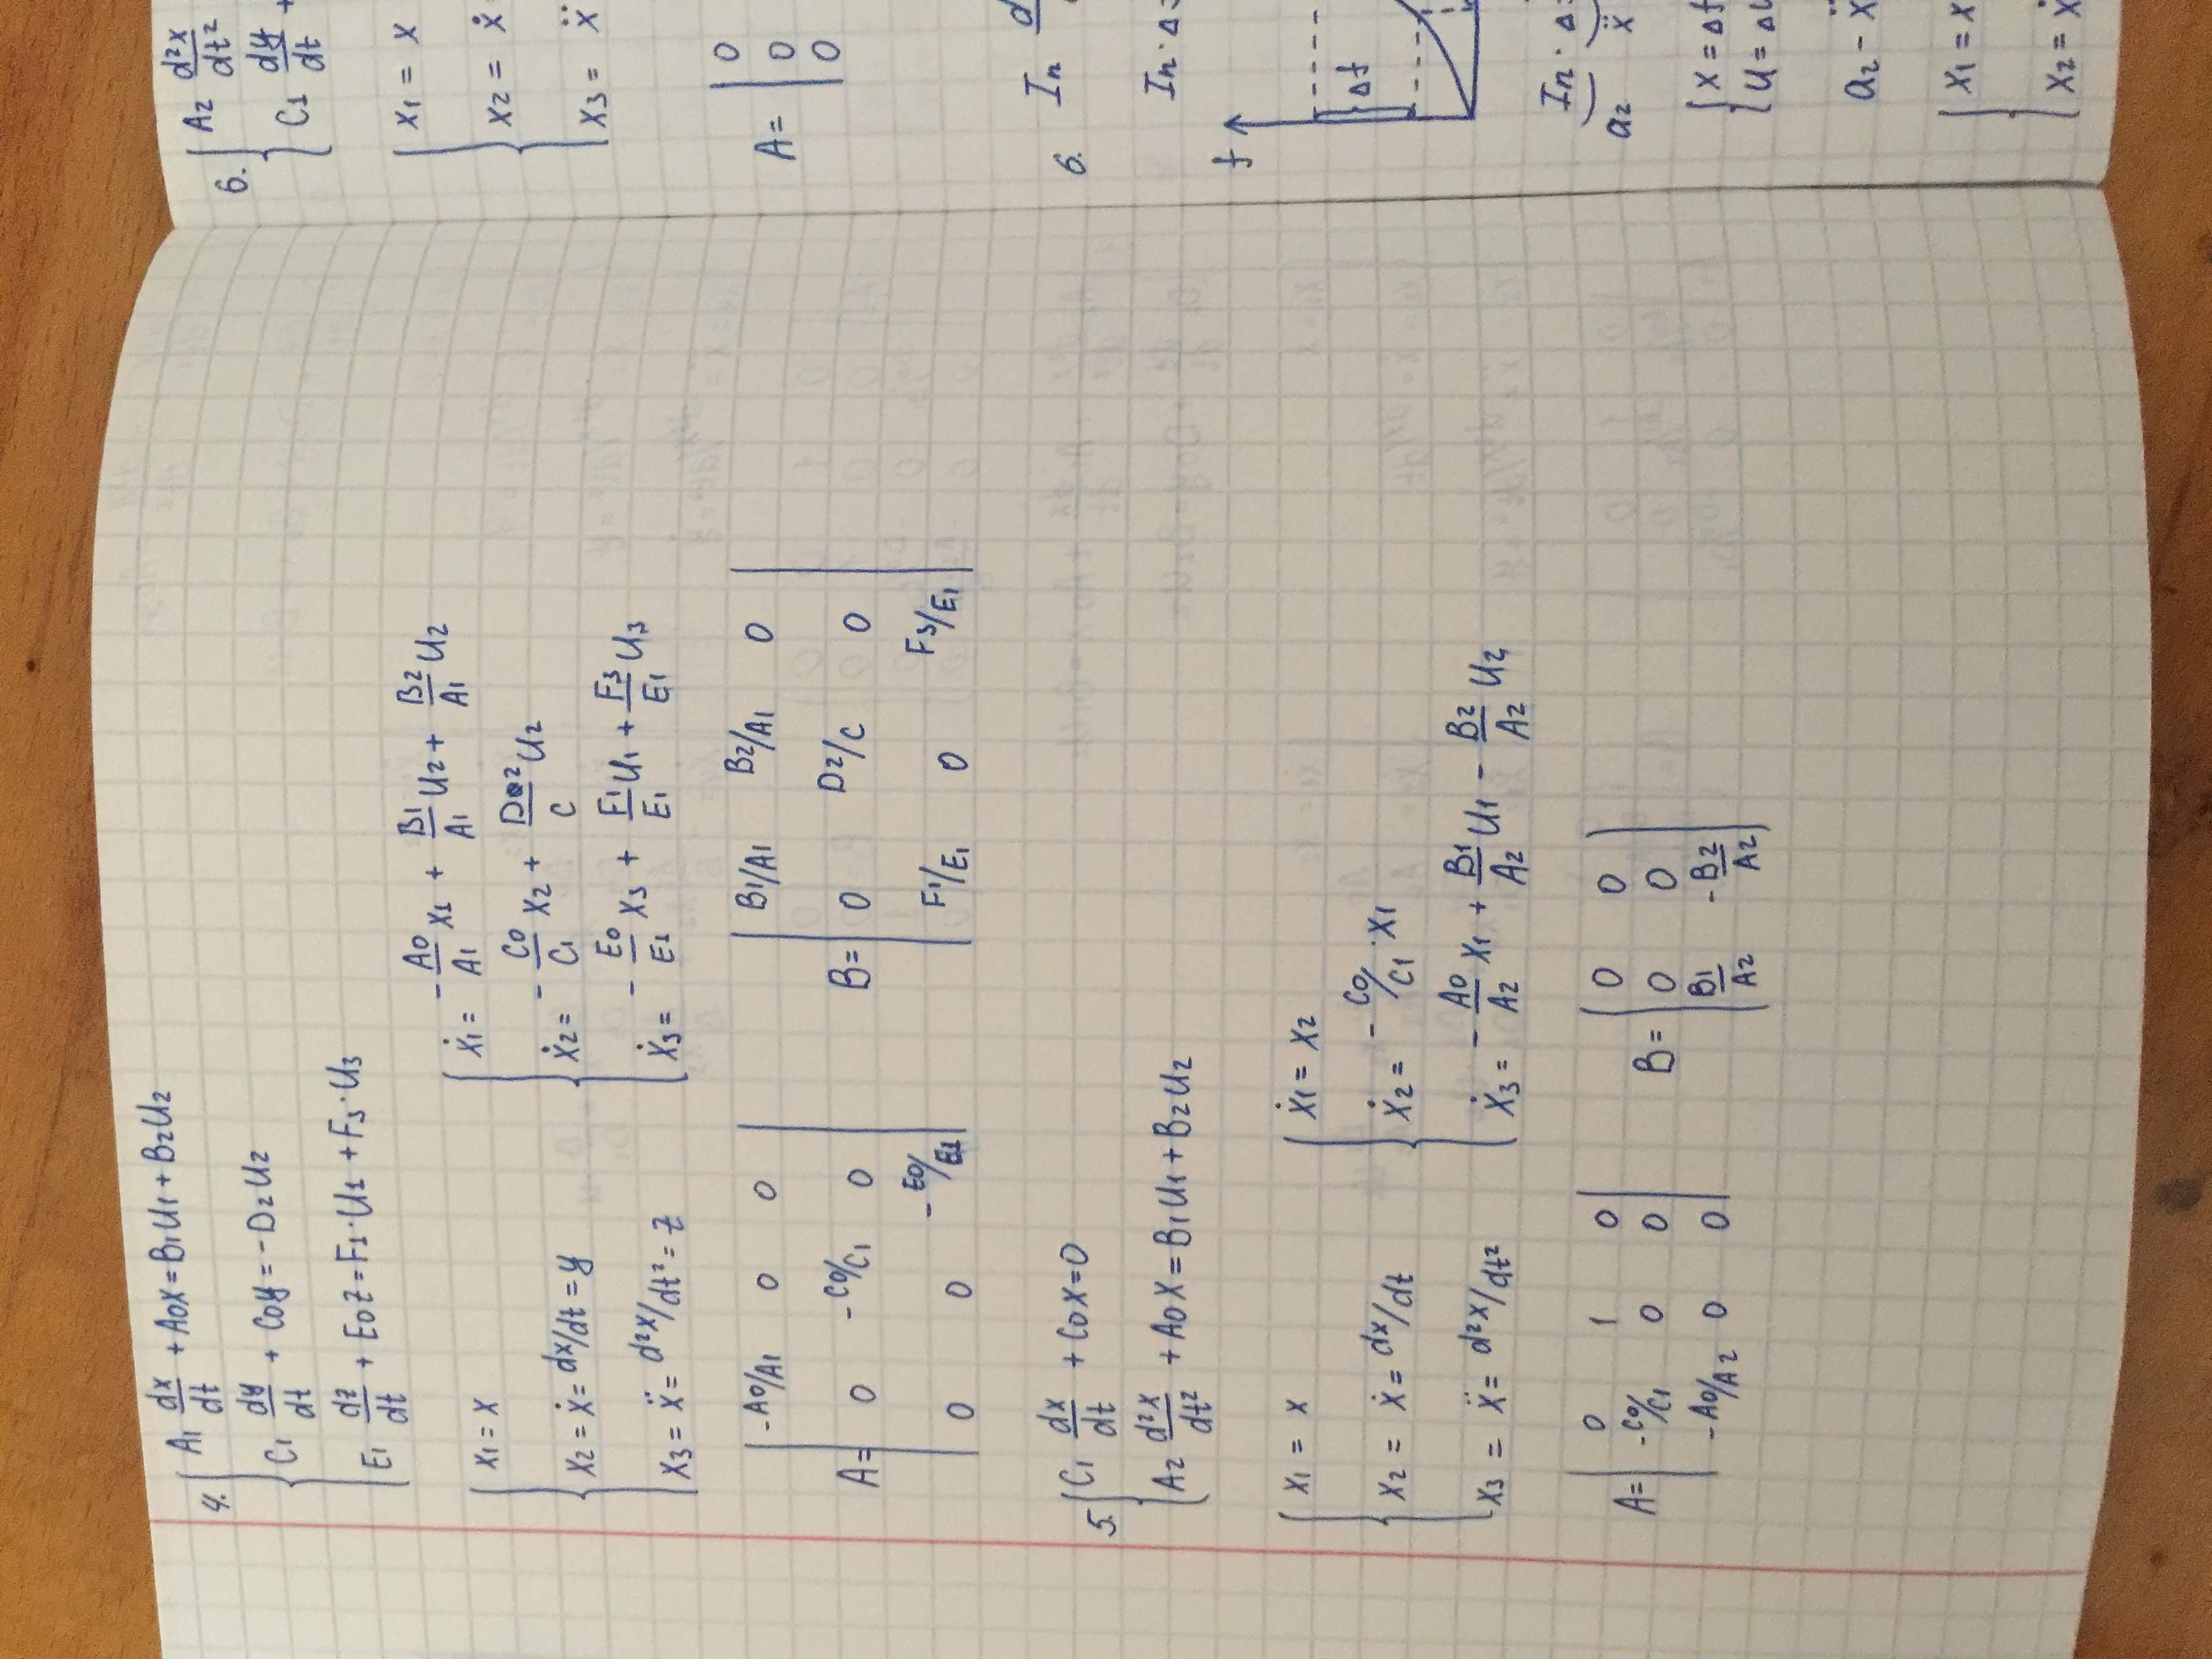 4. A1 dx/dt + A0x = B1U1 + B2U2
C1 dy/dt + C0y = -D2U2
E1 dz/dt + E0z = F1·U1 + F3·U3
x1 = x
x2 = ẋ = dx/dt = y
x3 = ẍ = d²x/dt² = z
ẋ1 = -A0/A1 x1 + B1/A1 U2 + B2/A1 U2
ẋ2 = -C0/C1 x2 + D2/C U2
ẋ3 = -E0/E1 x3 + F1/E1 U1 + F3/E1 U3
A = | -A0/A1 0 0 |
| 0 -C0/C1 0 |
| 0 0 -E0/E1 |
B = | B1/A1 B2/A1 0 |
| 0 D2/C 0 |
| F1/E1 0 F3/E1 |
5. C1 dx/dt + C0x = 0
A2 d²x/dt² + A0x = B1U1 + B2U2
x1 = x
x2 = ẋ = dx/dt
x3 = ẍ = d²x/dt²
ẋ1 = x2
ẋ2 = -C0/C1 · x1
ẋ3 = -A0/A2 x1 + B1/A2 U1 - B2/A2 U2
A = | 0 1 0 |
| -C0/C1 0 0 |
| -A0/A2 0 0 |
B = | 0 0 |
| 0 0 |
| B1/A2 -B2/A2 |
6. A2 d²x/dt²
C1 dy/dt +
x1 = x
x2 = ẋ
x3 = ẍ
A = | 0
| 0
| 0
6. In d
In · Δ
f
Δf
In · Δ
a2 ẍ
x = Δf
U = ΔU
a2 - ẍ
x1 = x
x2 = ẋ